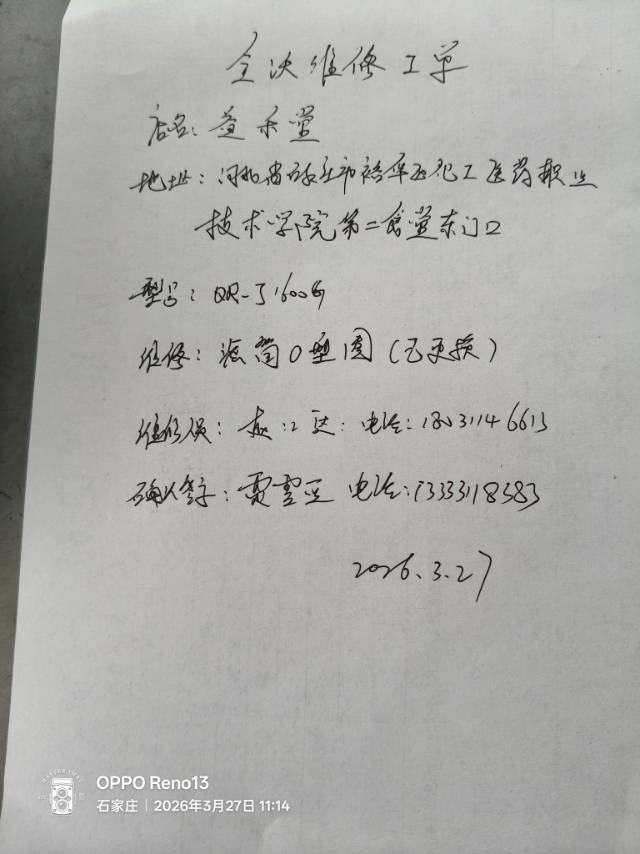 全决维修工单
店名：益禾堂
地址：河北省石家庄市裕华区化工医药职业
技术学院第二食堂东门口
型号：QR-J1600G
维修：滤筒O型圈（已更换）
维修员：赵 电话：18031146613
确认签字：贾雪 电话：13333118383
2026.3.27
OPPO Reno13
石家庄 | 2026年3月27日 11:14